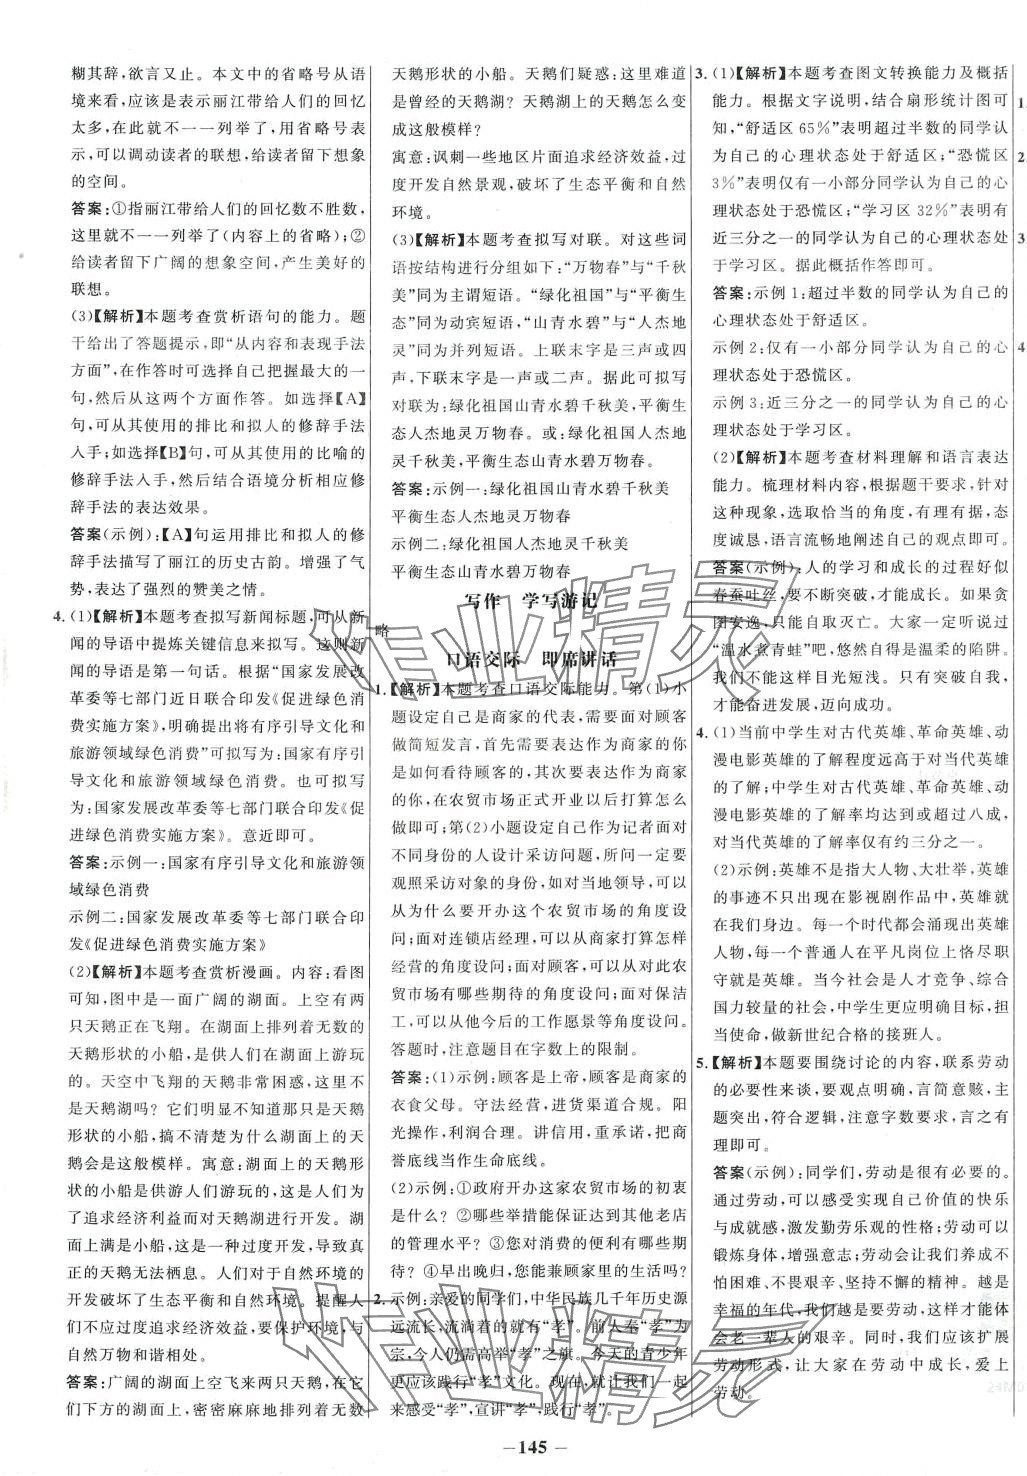 糊其辞,欲言又止。本文中的省略号从语
境来看,应该是表示丽江带给人们的回忆
太多,在此就不一一列举了,用省略号表
示,可以调动读者的联想,给读者留下想象
的空间。
答案:①指丽江带给人们的回忆数不胜数,
这里就不一一列举了(内容上的省略);②
给读者留下广阔的想象空间,产生美好的
联想。
(3)【解析】本题考查赏析语句的能力。题
干给出了答题提示,即“从内容和表现手法
方面”,在作答时可选择自己把握最大的一
句,然后从这两个方面作答。如选择【A】
句,可从其使用的排比和拟人的修辞手法
入手;如选择【B】句,可从其使用的比喻的
修辞手法入手,然后结合语境分析相应修
辞手法的表达效果。
答案(示例):【A】句运用排比和拟人的修
辞手法描写了丽江的历史古韵。增强了气
势,表达了强烈的赞美之情。
4. (1)【解析】本题考查拟写新闻标题,可从新
闻的导语中提炼关键信息来拟写。这则新
闻的导语是第一句话。根据“国家发展改
革委等七部门近日联合印发《促进绿色消
费实施方案》,明确提出将有序引导文化和
旅游领域绿色消费”可拟写为:国家有序引
导文化和旅游领域绿色消费。也可拟写
为:国家发展改革委等七部门联合印发《促
进绿色消费实施方案》。意近即可。
答案:示例一:国家有序引导文化和旅游领
域绿色消费
示例二:国家发展改革委等七部门联合印
发《促进绿色消费实施方案》
(2)【解析】本题考查赏析漫画。内容:看图
可知,图中是一面广阔的湖面。上空有两
只天鹅正在飞翔。在湖面上排列着无数的
天鹅形状的小船,是供人们在湖面上游玩
的。天空中飞翔的天鹅非常困惑,这里不
是天鹅湖吗?它们明显不知道那只是天鹅
形状的小船,搞不清楚为什么湖面上的天
鹅会是这般模样。寓意:湖面上的天鹅形
状的小船是供游人们游玩的,这是人们为
了追求经济利益而对天鹅湖进行开发。湖
面上满是小船,这是一种过度开发,导致真
正的天鹅无法栖息。人们对于自然环境的
开发破坏了生态平衡和自然环境。提醒人
们不应过度追求经济效益,要保护环境,与
自然万物和谐相处。
答案:广阔的湖面上空飞来两只天鹅,在它
们下方的湖面上,密密麻麻地排列着无数
天鹅形状的小船。天鹅们疑惑:这里难道
是曾经的天鹅湖?天鹅湖上的天鹅怎么变
成这般模样?
寓意:讽刺一些地区片面追求经济效益,过
度开发自然景观,破坏了生态平衡和自然
环境。
(3)【解析】本题考查拟写对联。对这些词
语按结构进行分组如下:“万物春”与“千秋
美”同为主谓短语。“绿化祖国”与“平衡生
态”同为动宾短语,“山青水碧”与“人杰地
灵”同为并列短语。上联末字是三声或四
声,下联末字是一声或二声。据此可拟写
对联为:绿化祖国山青水碧千秋美,平衡生
态人杰地灵万物春。或:绿化祖国人杰地
灵千秋美,平衡生态山青水碧万物春。
答案:示例一:绿化祖国山青水碧千秋美
平衡生态人杰地灵万物春
示例二:绿化祖国人杰地灵千秋美
平衡生态山青水碧万物春
写作 学写游记
略
口语交际 即席讲话
1. 【解析】本题考查口语交际能力。第(1)小
题设定自己是商家的代表,需要面对顾客
做简短发言,首先需要表达作为商家的你
是如何看待顾客的,其次要表达作为商家
的你,在农贸市场正式开业以后打算怎么
做即可;第(2)小题设定自己作为记者面对
不同身份的人设计采访问题,所问一定要
观照采访对象的身份,如对当地领导,可以
从为什么要开办这个农贸市场的角度设
问;面对连锁店经理,可以从商家打算怎样
经营的角度设问;面对顾客,可以从对此农
贸市场有哪些期待的角度设问;面对保洁
工,可以从他今后的工作愿景等角度设问。
答题时,注意题目在字数上的限制。
答案:(1)示例:顾客是上帝,顾客是商家的
衣食父母。守法经营,进货渠道合规。阳
光操作,利润合理。讲信用,重承诺,把商
誉底线当作生命底线。
(2)示例:①政府开办这家农贸市场的初衷
是什么?②哪些举措能保证达到其他老店
的管理水平?③您对消费的便利有哪些期
待?④早出晚归,您能兼顾家里的生活吗?
2. 示例:亲爱的同学们,中华民族几千年历史源
远流长,流淌着的就有“孝”。前人奉“孝”为
宗,今人仍需高举“孝”之旗。今天的青少年
更应该践行“孝”文化。现在,就让我们一起
来感受“孝”,宣讲“孝”,践行“孝”。
3. (1)【解析】本题考查图文转换能力及概括
能力。根据文字说明,结合扇形统计图可
知,“舒适区65%”表明超过半数的同学认
为自己的心理状态处于舒适区;“恐慌区
3%”表明仅有一小部分同学认为自己的心
理状态处于恐慌区;“学习区32%”表明有
近三分之一的同学认为自己的心理状态处
于学习区。据此概括作答即可。
答案:示例1:超过半数的同学认为自己的
心理状态处于舒适区。
示例2:仅有一小部分同学认为自己的心
理状态处于恐慌区。
示例3:近三分之一的同学认为自己的心
理状态处于学习区。
(2)【解析】本题考查材料理解和语言表达
能力。梳理材料内容,根据题干要求,针对
这种现象,选取恰当的角度,有理有据,态
度诚恳,语言流畅地阐述自己的观点即可。
答案(示例):人的学习和成长的过程好似
春蚕吐丝,要不断突破,才能成长。如果贪
图安逸,只会自取灭亡。大家一定听说过
“温水煮青蛙”吧,悠然自得是温柔的陷阱。
我们不能这样目光短浅。只有突破自己,
才能奋进发展,迈向成功。
4. (1)当前中学生对古代英雄、革命英雄、动
漫电影英雄的了解程度远高于对当代英雄
的了解;中学生对古代英雄、革命英雄、动
漫电影英雄的了解率均达到或超过八成,
对当代英雄的了解率仅有约三分之一。
(2)示例:英雄不是指大人物、大壮举,英雄
的事迹不只出现在影视剧作品中,英雄就
在我们身边。每一个时代都会涌现出英雄
人物,每一个普通人在平凡岗位上恪尽职
守就是英雄。当今社会是人才竞争、综合
国力较量的社会,中学生更应明确目标,担
当使命,做新世纪合格的接班人。
5. 【解析】本题要围绕讨论的内容,联系劳动
的必要性来谈,要观点明确,言简意赅,主
题突出,符合逻辑,注意字数要求,言之有
理即可。
答案(示例):同学们,劳动是很有必要的。
通过劳动,可以感受实现自己价值的快乐
与成就感,激发勤劳乐观的性格;劳动可以
锻炼身体,增强意志;劳动还能让我们养成不
怕困难、不畏艰辛、坚持不懈的精神。越是
幸福的年代,我们越是要劳动,这样才能体
会老一辈人的艰辛。同时,我们应该扩展
劳动形式,让大家在劳动中成长,爱上
劳动。
1.
2.
3
4
作业精灵
作业精灵
— 145 —